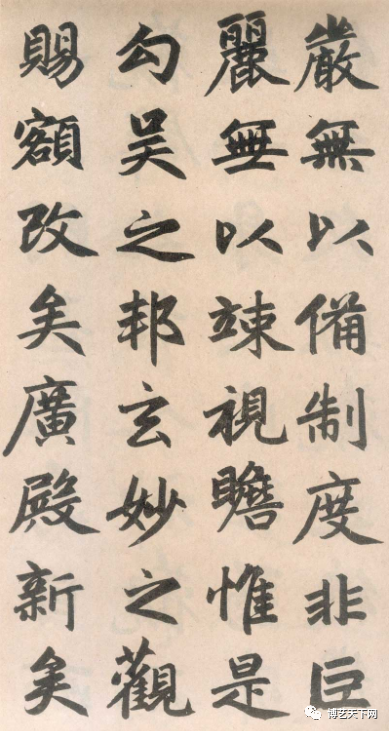 嚴無以備制度非巨
麗無以竦視瞻惟是
勾吴之邦玄妙之觀
賜額改矣廣殿新矣
博艺天下网